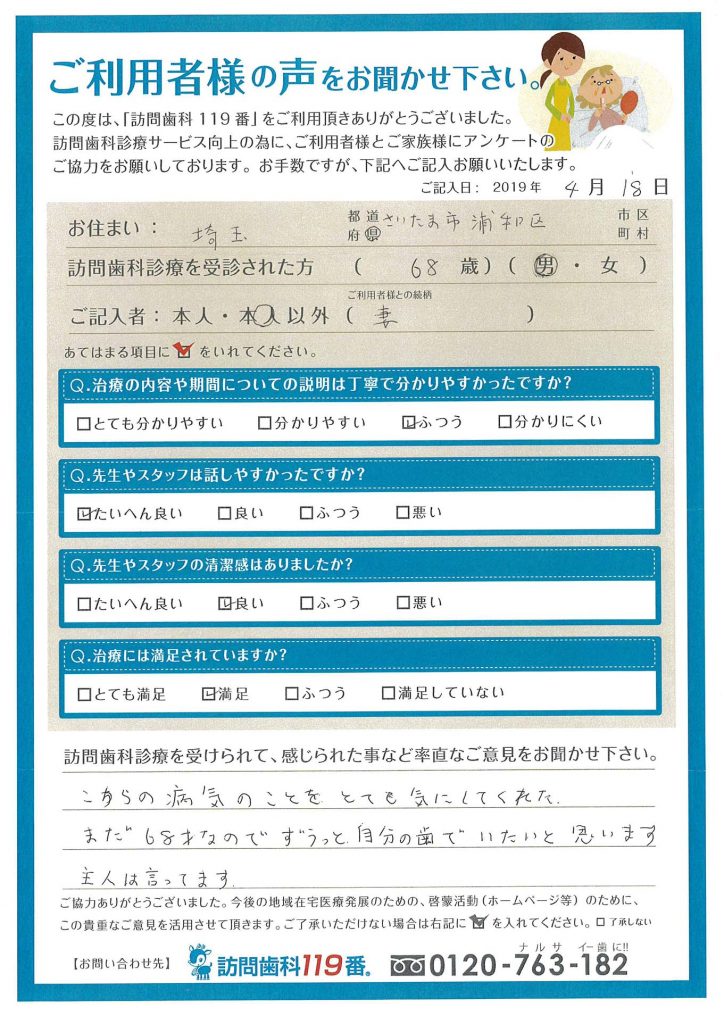 ご利用者様の声をお聞かせ下さい。
この度は、「訪問歯科 119 番」をご利用頂きありがとうございました。
訪問歯科診療サービス向上の為に、ご利用者様とご家族様にアンケートの
ご協力をお願いしております。お手数ですが、下記へご記入お願いいたします。
ご記入日： 2019 年 4 月 18 日
お住まい： 埼玉 都道府県 さいたま市浦和区 市区町村
訪問歯科診療を受診された方 （ 68 歳）（ 男 ・ 女 ）
ご利用者様との続柄
ご記入者：本人・本人以外（ 妻 ）
あてはまる項目に☑をいれてください。
Q.治療の内容や期間についての説明は丁寧で分かりやすかったですか?
□とても分かりやすい □分かりやすい ☑ふつう □分かりにくい
Q.先生やスタッフは話しやすかったですか?
☑たいへん良い □良い □ふつう □悪い
Q.先生やスタッフの清潔感はありましたか?
□たいへん良い ☑良い □ふつう □悪い
Q.治療には満足されていますか?
□とても満足 ☑満足 □ふつう □満足していない
訪問歯科診療を受けられて、感じられた事など率直なご意見をお聞かせ下さい。
こちらの病気のことをとても気にしてくれた.
まだ68才なのでずうっと.自分の歯でいたいと思います
主人は言ってます.
ご協力ありがとうございました。今後の地域在宅医療発展のための、啓蒙活動（ホームページ等）のために、
この貴重なご意見を活用させて頂きます。ご了承いただけない場合は右記に☑を入れてください。□了承しない
ナルサ イー歯に!!
【お問い合わせ先】 訪問歯科119番。 0120-763-182